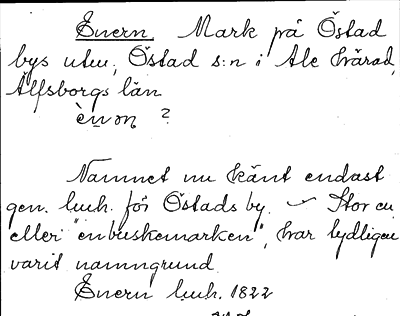 Enern. Mark på Östad
bys utm., Östad s:n i Ale härad,
Älfsborgs län
ènən ?
Namnet nu känt endast
gen. lmh. för Östads by. – Stor en
eller "enbuskemarken", har tydligen
varit namngrund
Enern lmh. 1822